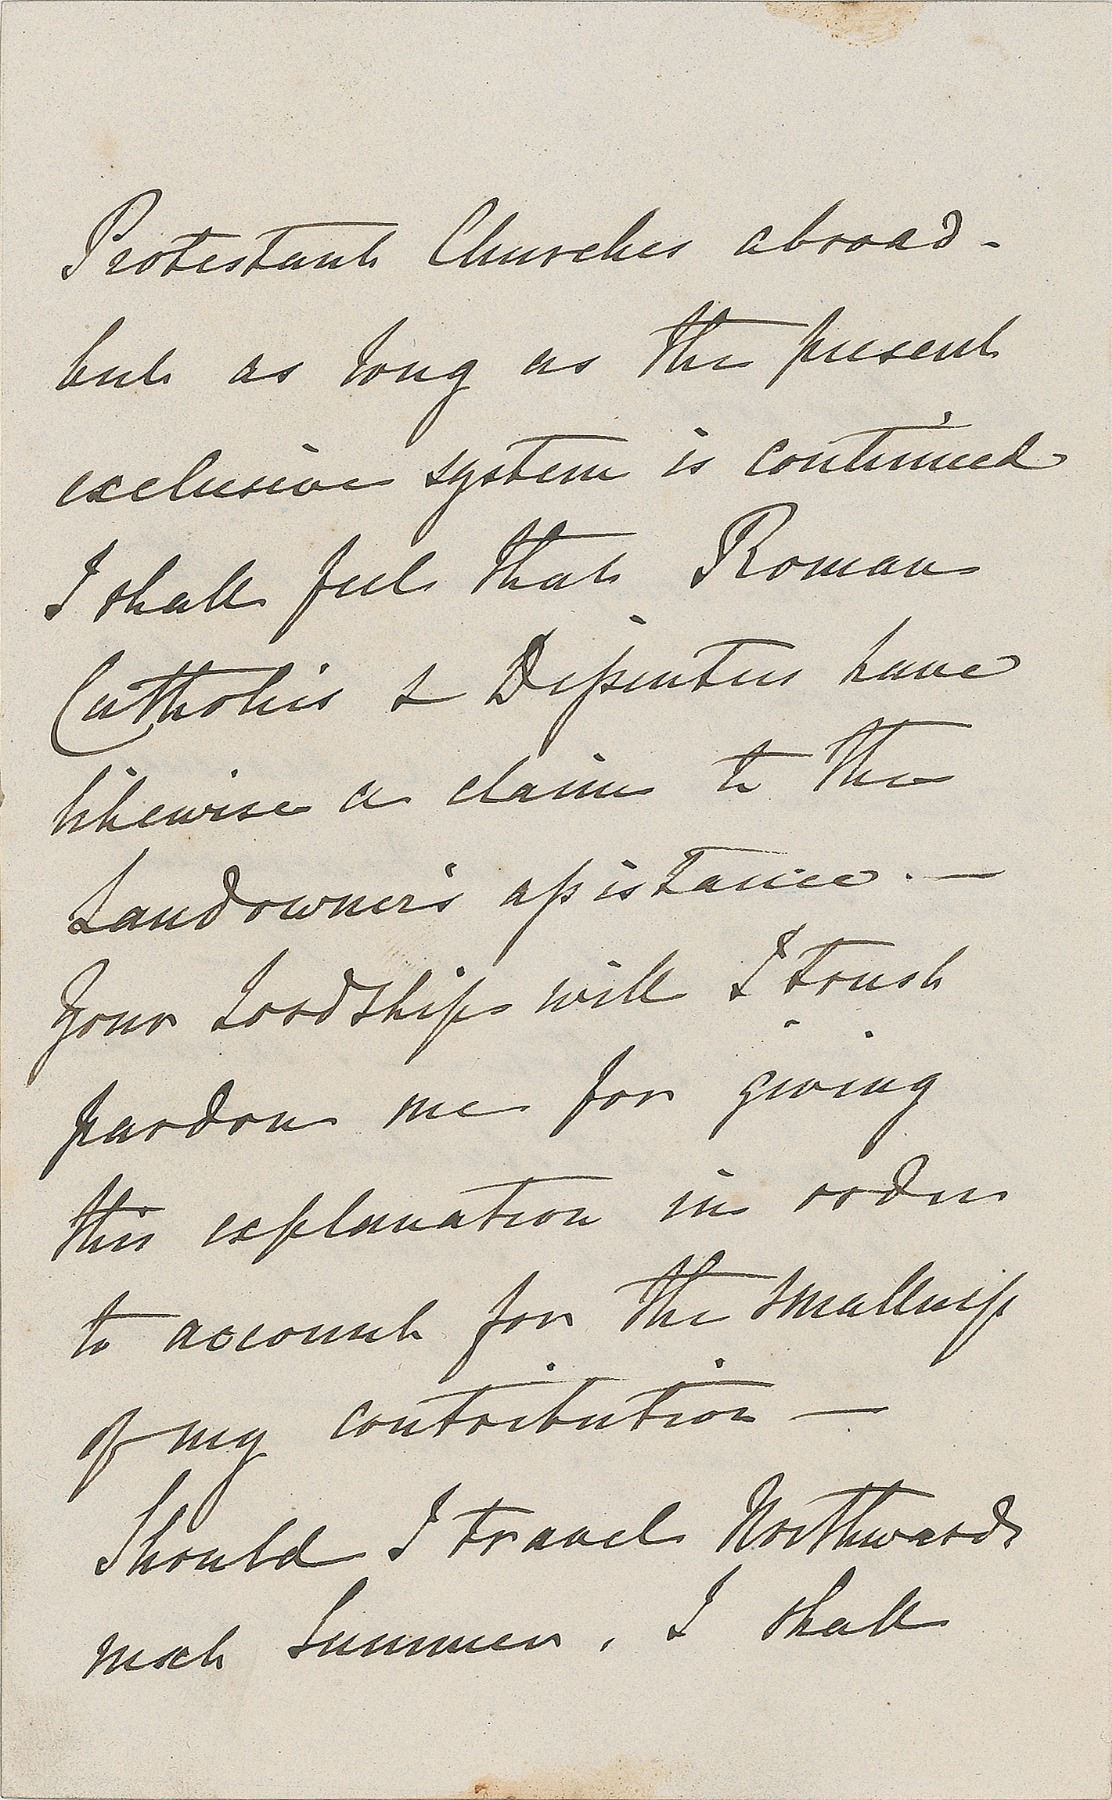 Protestant Churches abroad -
but as long as the present
exclusive system is continued
I shall feel that Roman
Catholics & Dissenters have
likewise a claim to the
Landowner's assistance. —
Your Lordship will I trust
pardon me for giving
this explanation in order
to account for the smallness
of my contribution —
Should I travel Northwards
next Summer, I shall